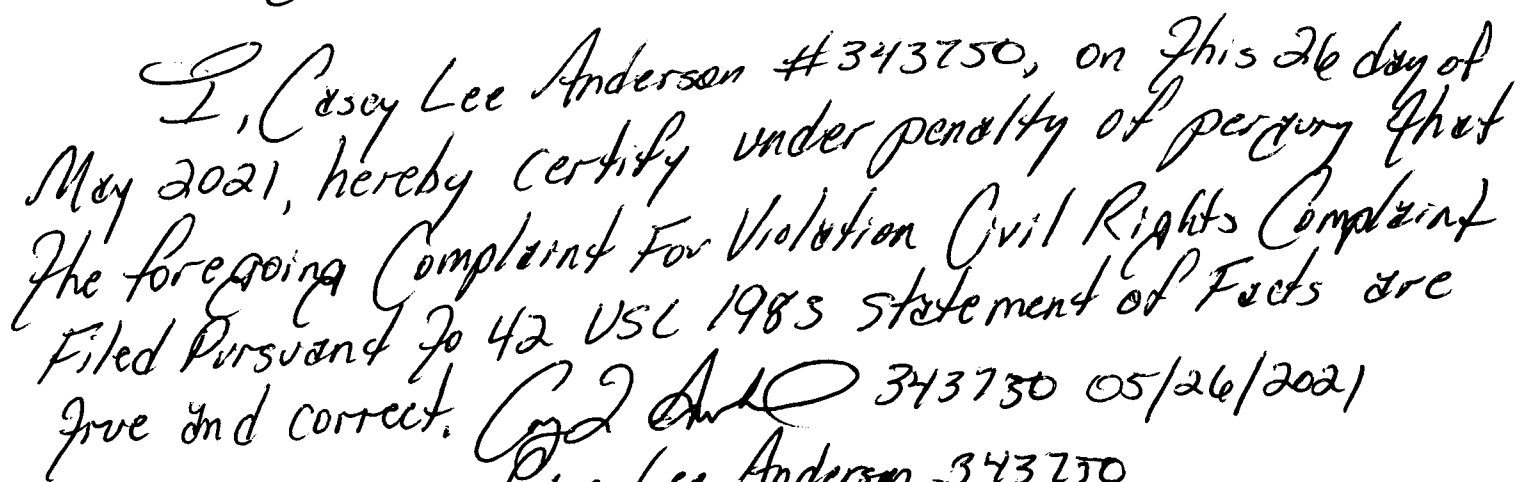 I, Casey Lee Anderson #343750, on This 26 day of
May 2021, hereby certify under penalty of pergury That
The foregoing Complaint For Violation Civil Rights Complaint
Filed Pursuant To 42 USC 1983 statement of Facts are
True and correct. 343750 05/26/2021
Lee Anderson 343750